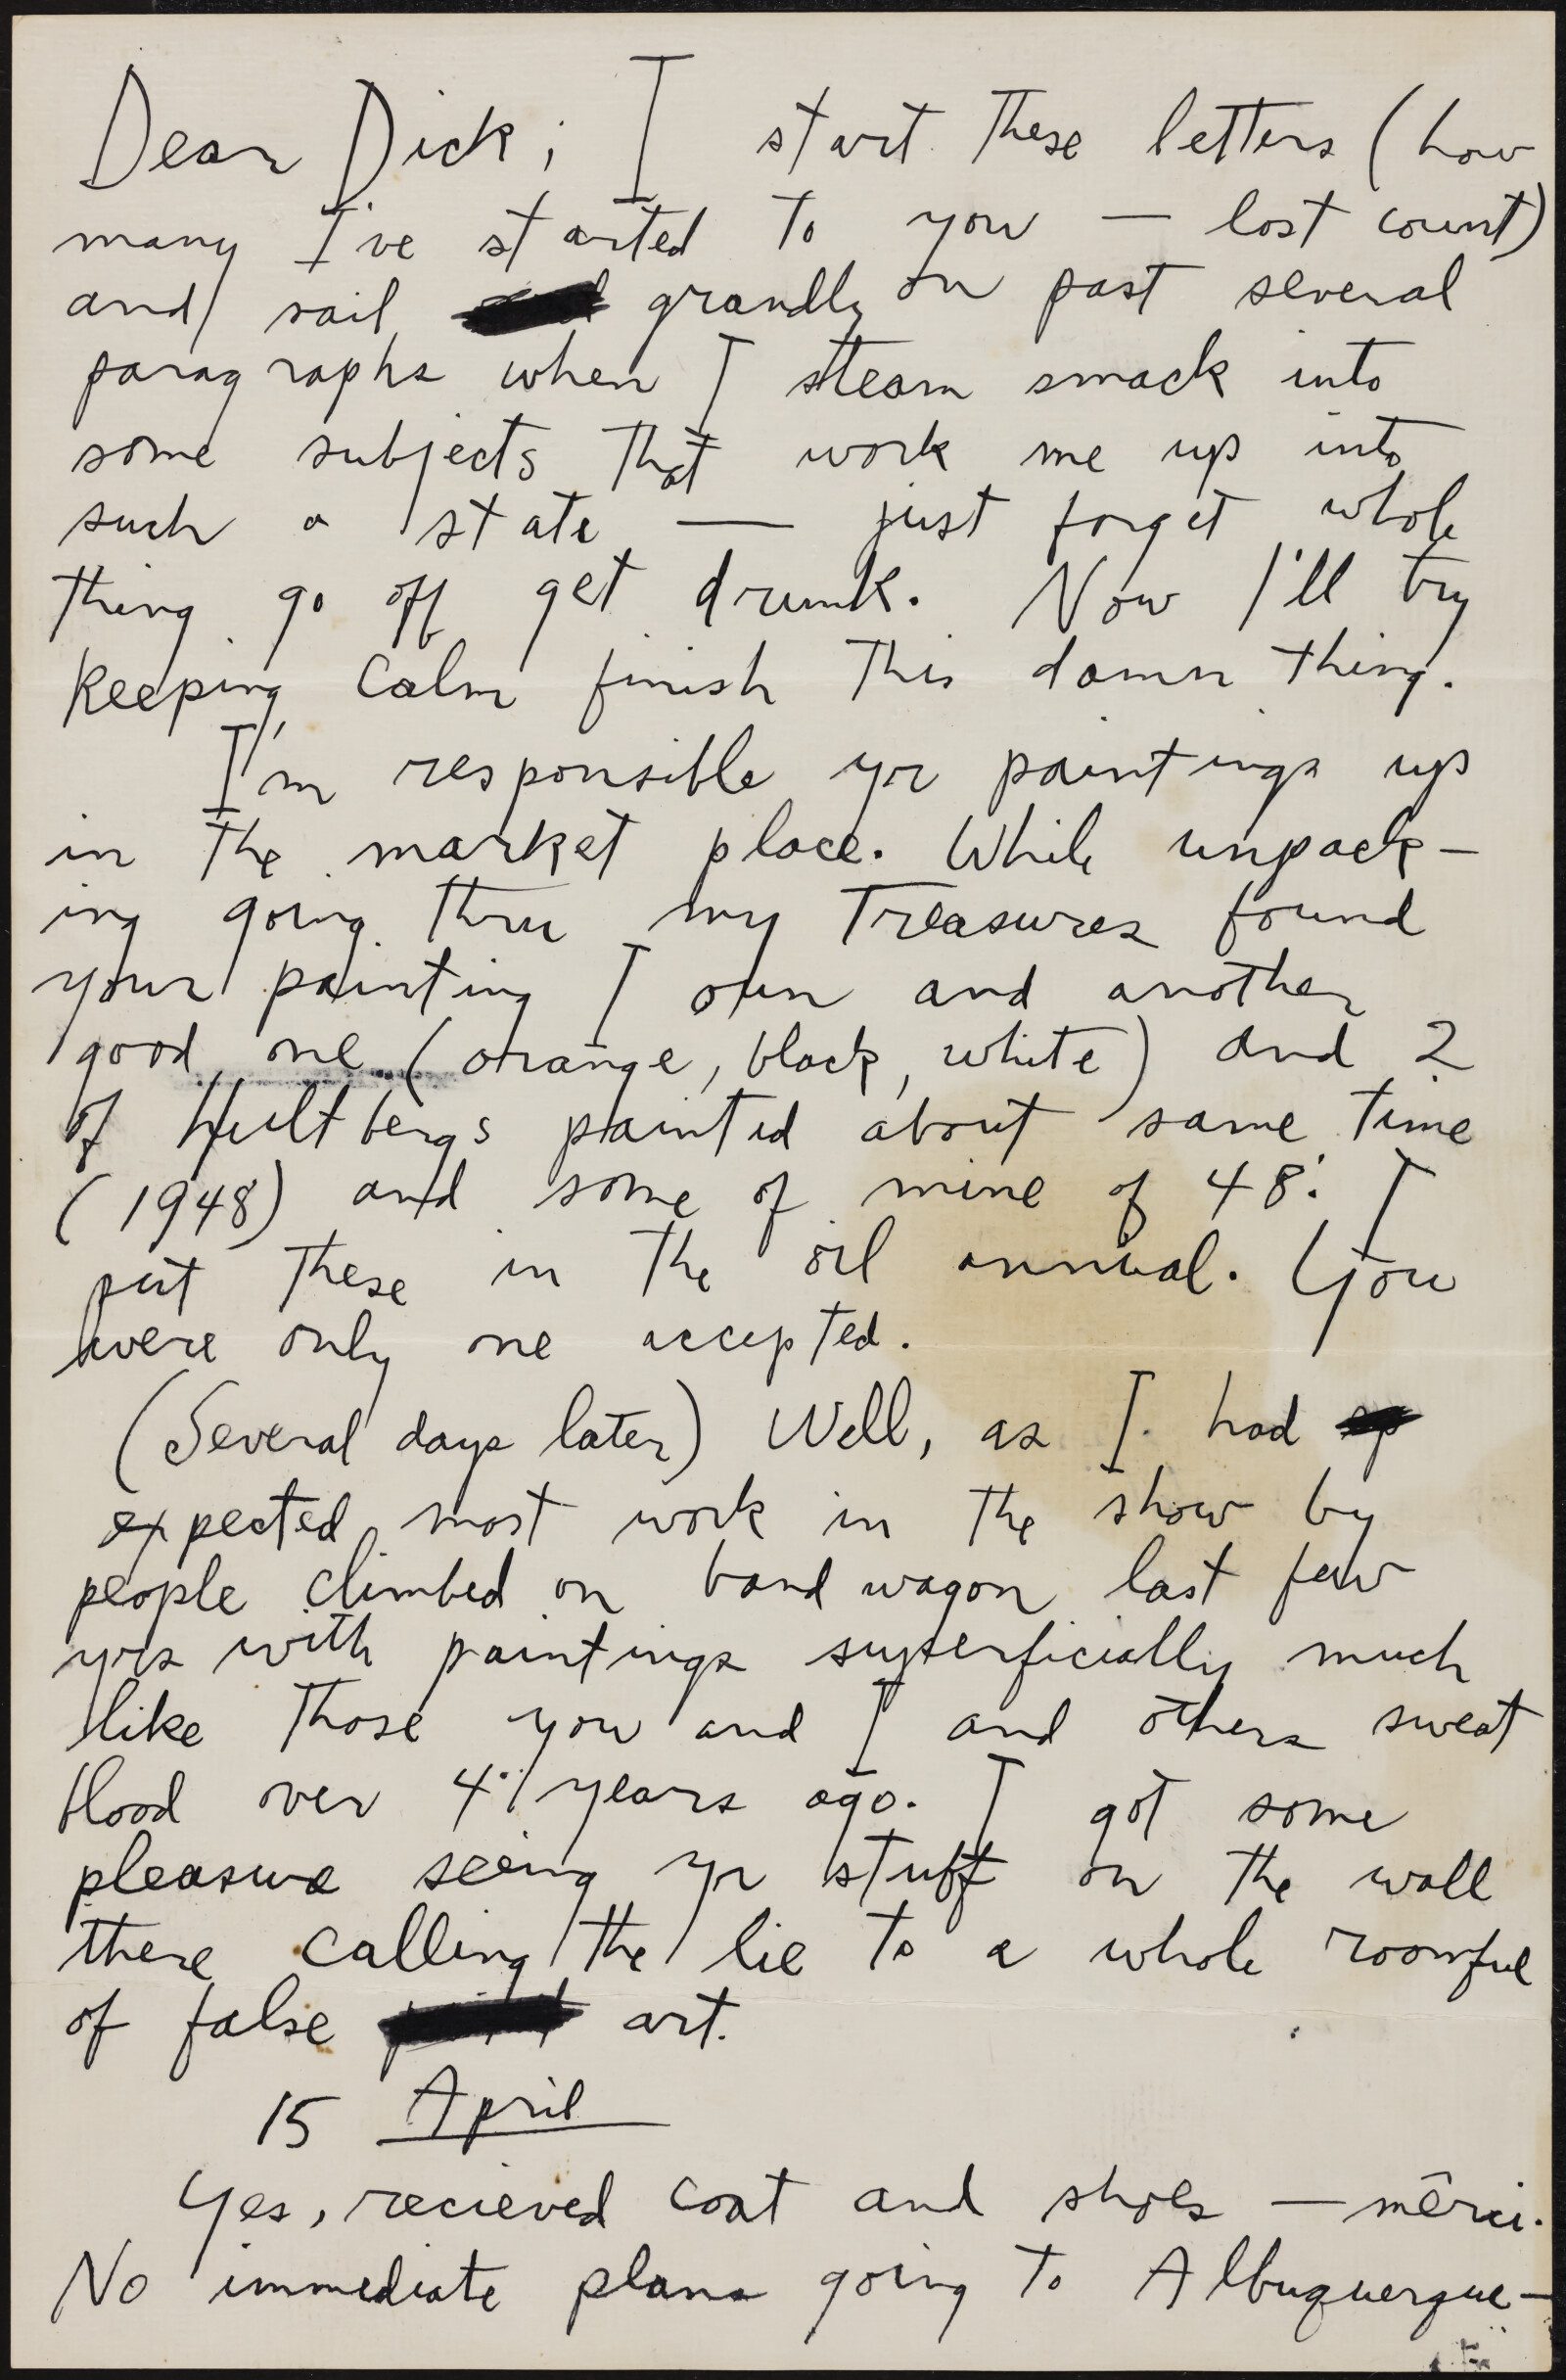 Dear Dick; I start these letters (how
many I've started to you — lost count)
and sail grandly on past several
paragraphs when I steam smack into
some subjects that work me up into
such a state — just forget whole
thing go off get drunk. Now I'll try
keeping calm finish this damn thing.
I'm responsible yr paintings up
in the market place. While unpack-
ing going thru my treasures found
your painting I own and another
good one (orange, black, white) and 2
of Hultbergs painted about same time
(1948) and some of mine of 48. I
put these in the oil annual. You
were only one accepted.
(Several days later) Well, as I had
expected most work in the show by
people climbed on band wagon last few
yrs with paintings superficially much
like those you and I and others sweat
blood over 4 years ago. I got some
pleasure seeing yr stuff on the wall
there calling the lie to a whole roomful
of false art.
15 April
Yes, recieved coat and shoes — mērci.
No immediate plans going to Albuquerque —